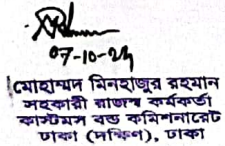 07-10-24
মোহাম্মদ মিনহাজুর রহমান
সহকারী রাজস্ব কর্মকর্তা
কাস্টমস বন্ড কমিশনারেট
ঢাকা (দক্ষিণ), ঢাকা